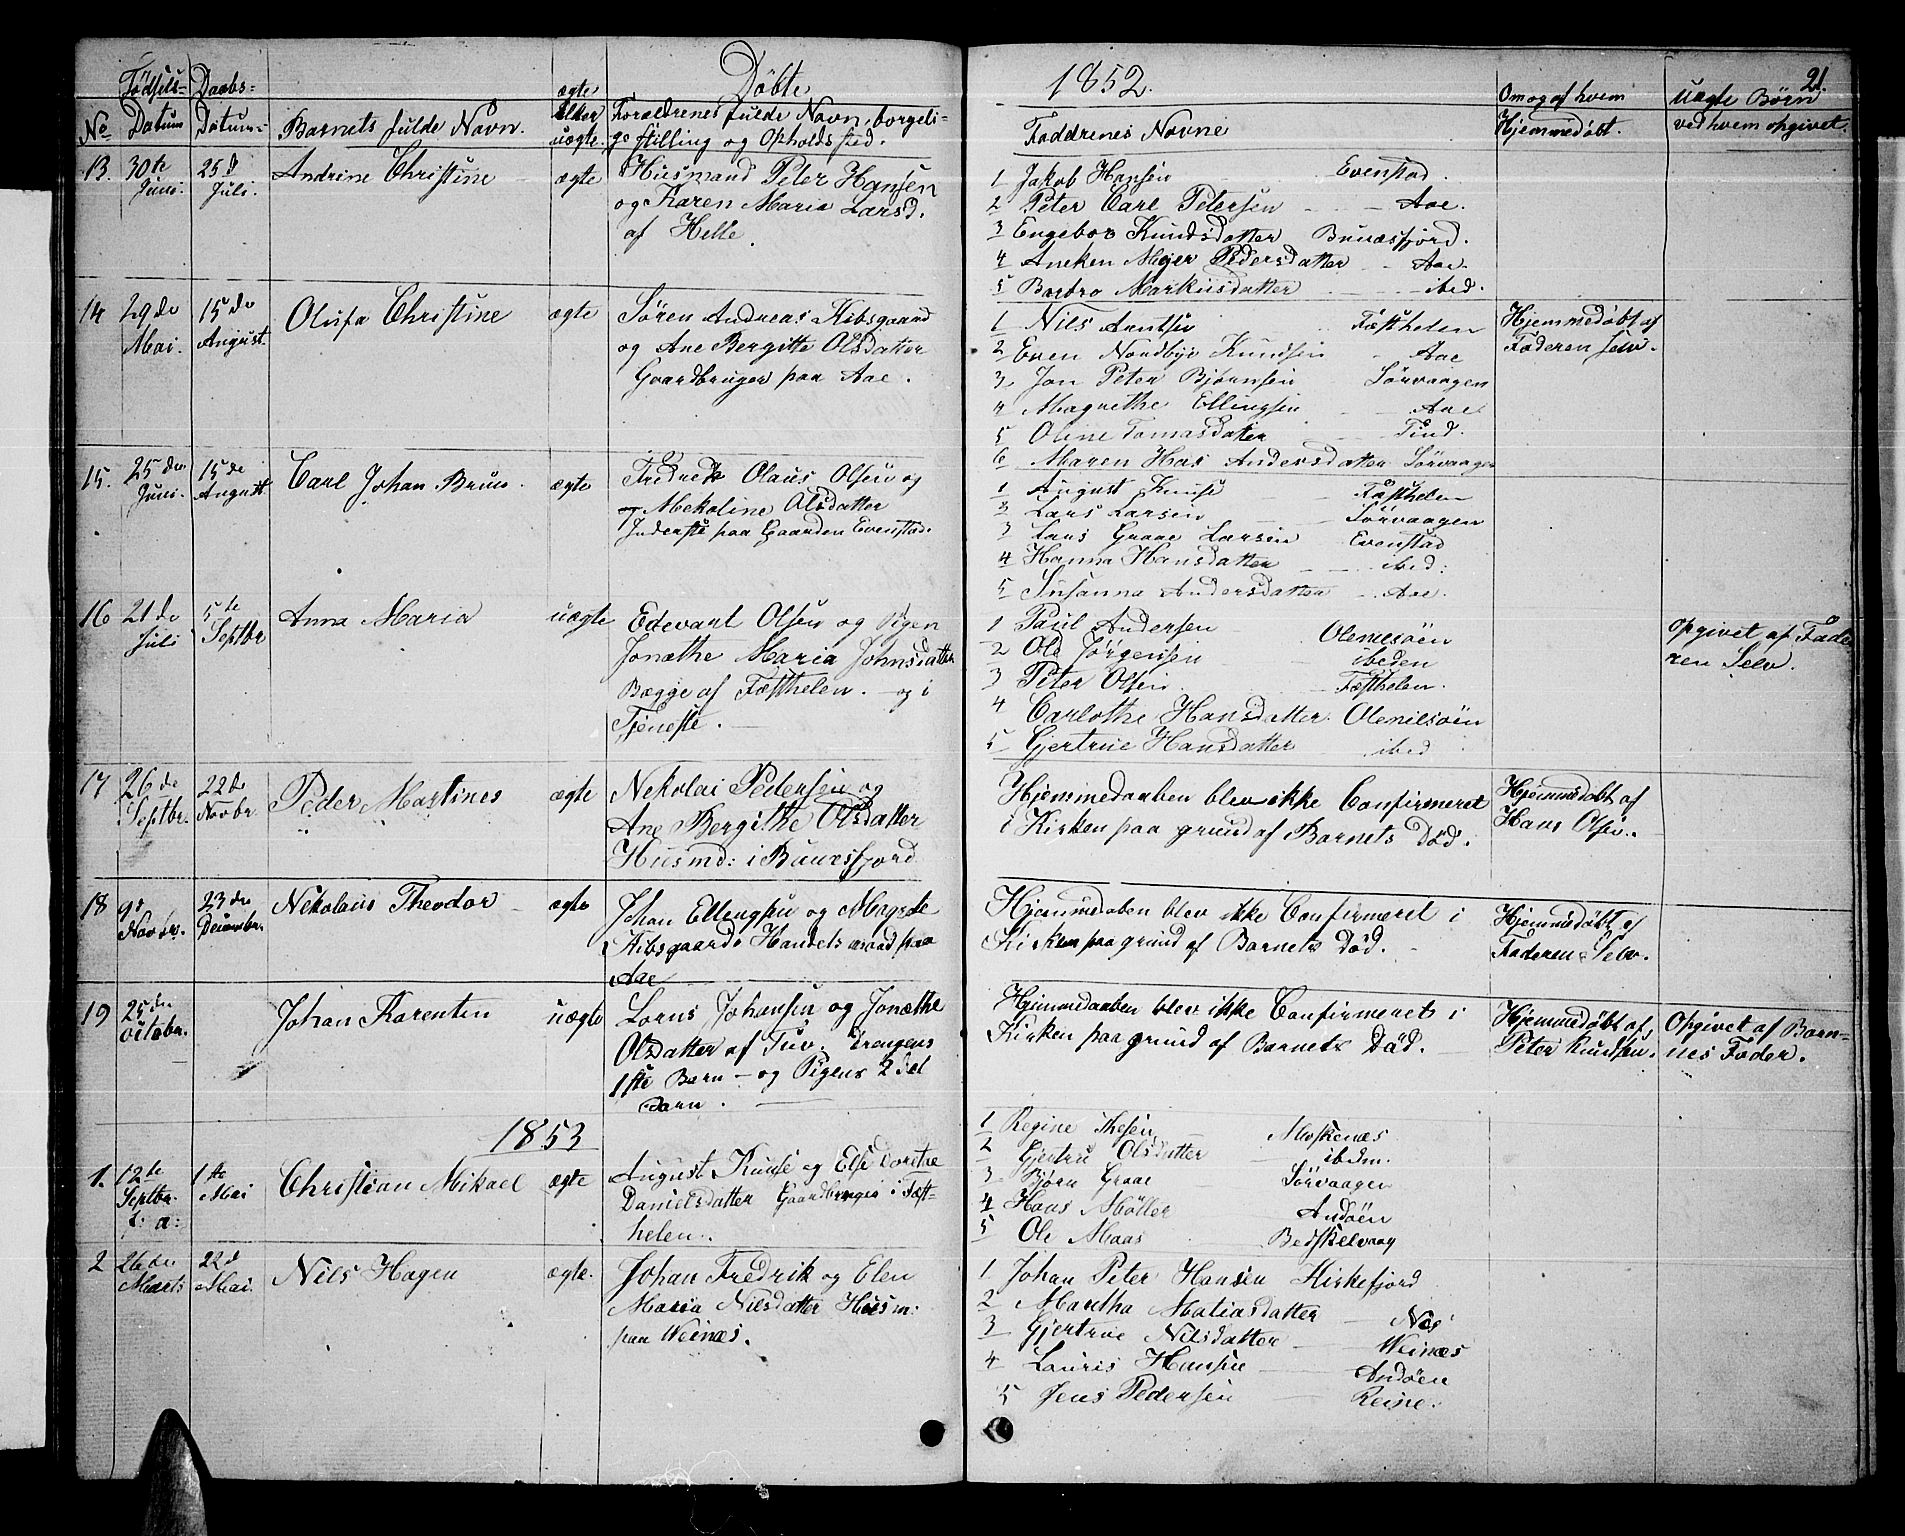 Döbte
1852.
21.
Födsels- Datum
Daabs- Datum
No
Barnets fulde Navn.
ægte eller uægte.
Foræidrenes fulde Navn, borgeli-
ge stilling og Opholdssted.
Faddrenes Navne
Om og af hvem
Hjemmedöbt.
uægte Börn
ved hvem opgivet.
13. 30te Juni. 25d Juli. Andrine Christine ægte
Husmand Peter Hansen
og Karen Maria Larsd.
af Helle.
1 Jakob Hansen Evenstad.
2 Peter Carl Petersen Aae.
3 Engebor Knudsdatter Bunæsfjord.
4 Aneken Mejer Pedersdatter Aae.
5 Barbro Markusdatter ibed.
14 29de Mai. 15de August. Olufa Christine ægte
Sören Andreas Kibsgaard
og Ane Bergitte Olsdatter
Gaardbruger paa Aae.
1 Nils Arntsen Fæsthelen
2 Even Nordbye Knudsen Aae
3 Jon Peter Bjørnsen Sörvaagen
4 Magrethe Ellingsen Aae
5 Oline Tomasdatter Tind.
6 Maren Has Andersdatter Sörvaagen
Hjemmedöbt af
Faderen selv.
15. 25de Juni. 15de August Carl Johan Bruun. ægte
Fredrek Olaus Olsen og
og Mekoline Olsdatter
Inderste paa Gaarden Evenstad.
1 August Knuse Fæsthelen
2 Lars Larsen Sörvaagen
3 Lars Graae Larsen Evenstad
4 Hanna Hansdatter ibed:
5 Susanna Andersdatter Aae.
16 21de Juli 5te Septbr Anna Maria uægte
Edevart Olsen og Pigen
Jonæthe Maria Johnsdatter
Begge af Fæsthelen. og i
Tjeneste.
1 Paul Andersen Olenilsöen
2 Ole Jörgensen ibeden
3 Peter Olsen Fæsthelen.
4 Carlothe Hansdatter. Olenilsöen
5 Gjertrue Hansdatter ibed
Opgivet af Fade-
ren Selv.
17 26de Septbr. 22de Novbr. Peder Martines ægte
Nekolai Pedersen og
Ane Bergithe Olsdatter
Husmd: i Bunesfjord
Hjemmedaaben blev ikke Confirmeret
i Kirken paa grund af Barnets Död.
Hjemmedöbt af
Hans Olsen.
18 9de Novbr. 23de Decembr. Nekolaus Theodor ægte
Johan Ellengsen og Magrete
Kibsgaard Handelsmand paa
Aae
Hjemmedaaben blev ikke Confirmeret i
Kirken paa grund af Barnets Död.
Hjemmedöbt af
Faderen Selv.
19 25de Octobr. Johan Karentin uægte
Lorns Johansen og Jonæthe
Olsdatter af Tuv. Drengens
1ste Barn - og Pigens 2det
Barn.
Hjemmedaaben blev ikke Confirmeret i
Kirken paa grund af Barnets Död.
Hjemmedöbt af
Peter Knudsen.
Opgivet af Barn-
nes Fader.
1853
1. 12te Septbr. f: a: 1ste Mai Christian Mikael ægte
August Knuse og Else Dorethe
Danielsdatter Gaardbruger i Fæst-
helen.
1 Regine Thesen Moskenæs
2 Gjertru Olsdatter ibedm.
3 Björn Graae Sörvaagen
4 Hans Möller Andöen
5 Ole Maas Bedskelvaag
2 26de Marts 22d Mai. Nils Hagen ægte.
Johan Fredrik og Elen
Maria Nilsdatter Husm:
paa Weinæs.
1 Johan Peter Hansen Kirkefjord
2 Martha Matiasdatter Næs
3 Gjertrue Nilsdatter Weinæs
4 Lauris Hansen Andöen
5 Jens Pedersen Reine.